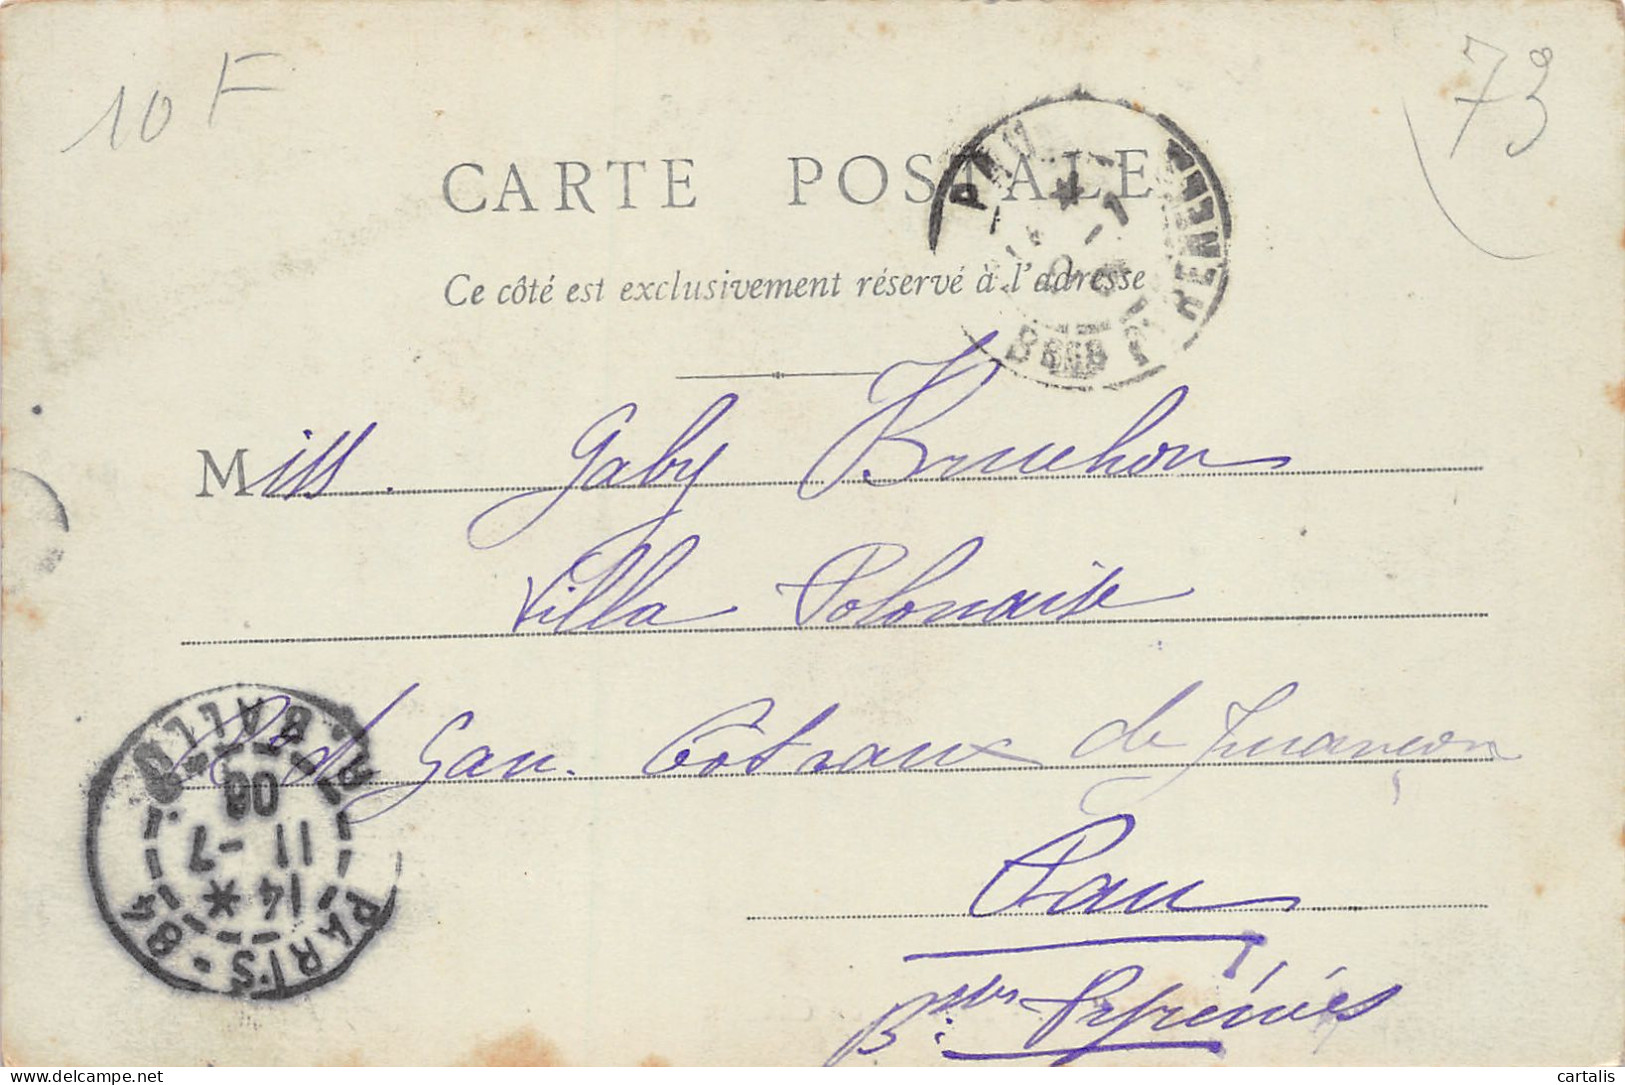 10 F
73
CARTE POSTALE
Ce côté est exclusivement réservé à l'adresse
Miss. Gaby
Villa Polonaise
Gau. Côteaux de Jurançon
Pau
Bsses Pyrénées
PARIS - 84 · R. BALLU
14 *
11 - 7
06
cartalis